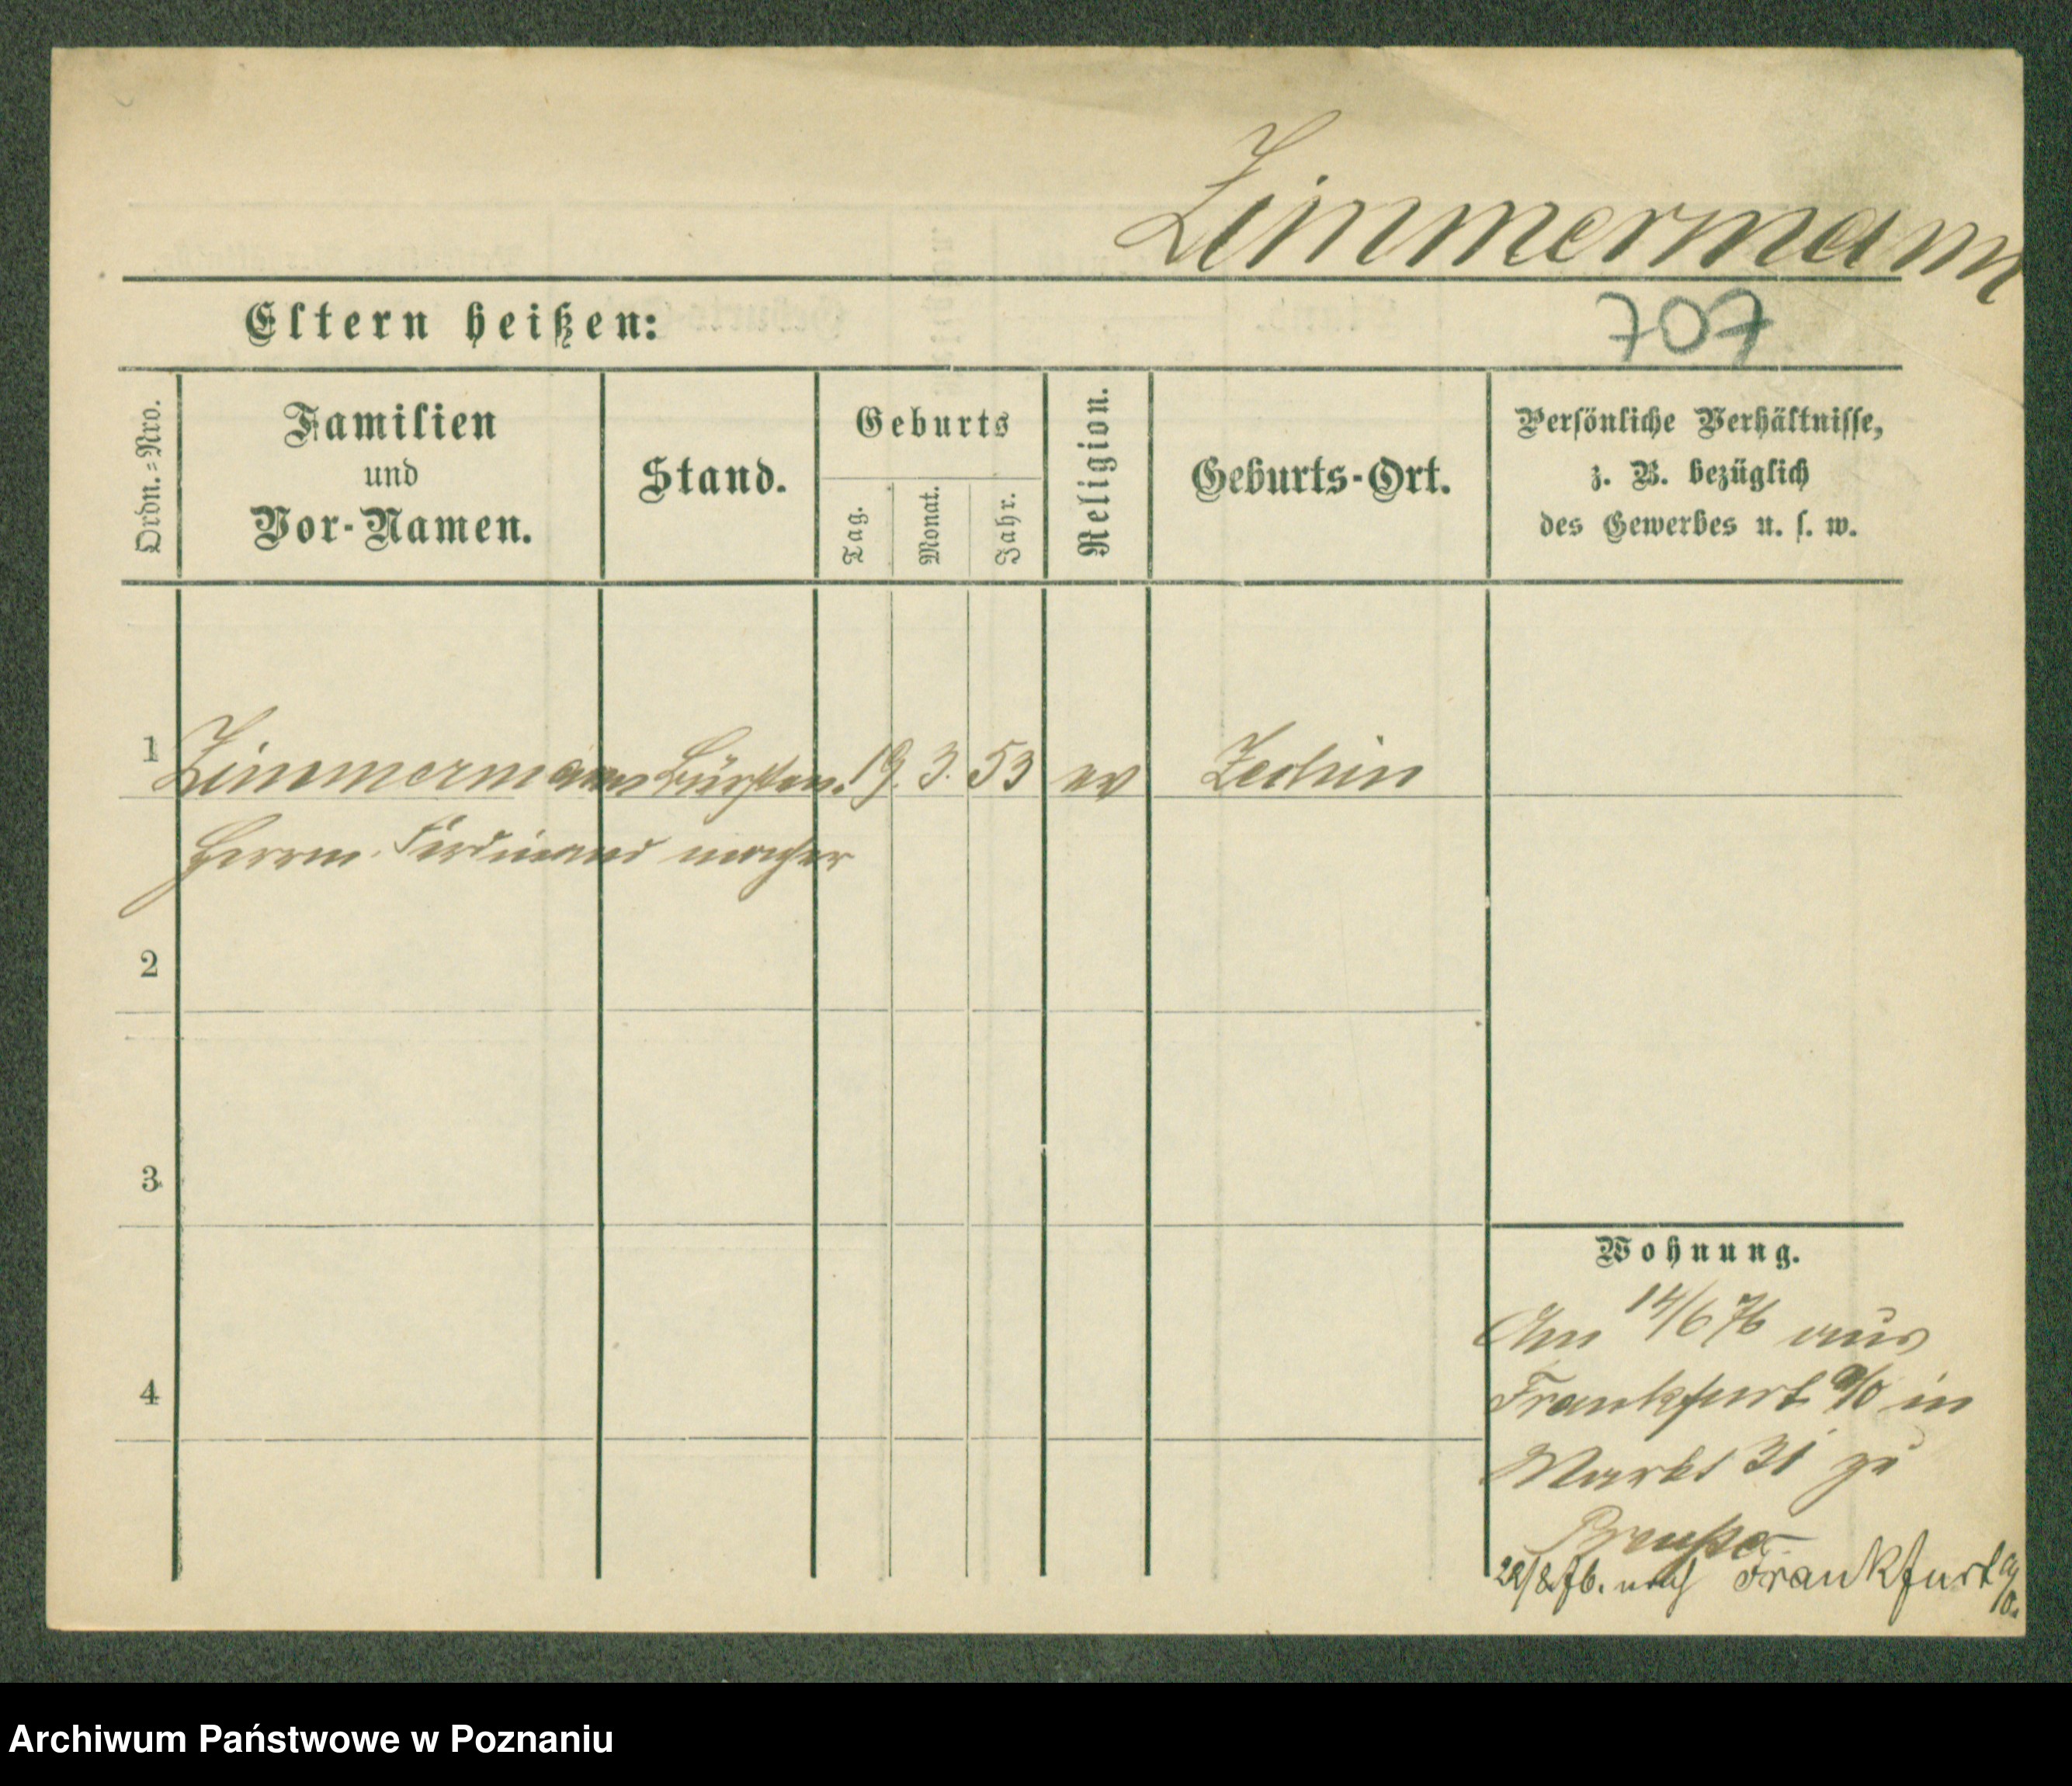 Zimmermann
Eltern heißen:
707
Ordn.=Nro.
Familien
und
Vor-Namen.
Stand.
Geburts
Tag.
Monat.
Jahr.
Religion.
Geburts-Ort.
Persönliche Verhältnisse,
z. B. bezüglich
des Gewerbes u. s. w.
1 Zimmermann Bürsten 19. 3. 53 ev Zechin
Herrm. Ferdinand macher
2
3
4
Wohnung.
Am 14/6 76 aus
Frankfurt a/O in
Markt 31 zu
28/8 76. nach Frankfurt a/O.
Archiwum Państwowe w Poznaniu